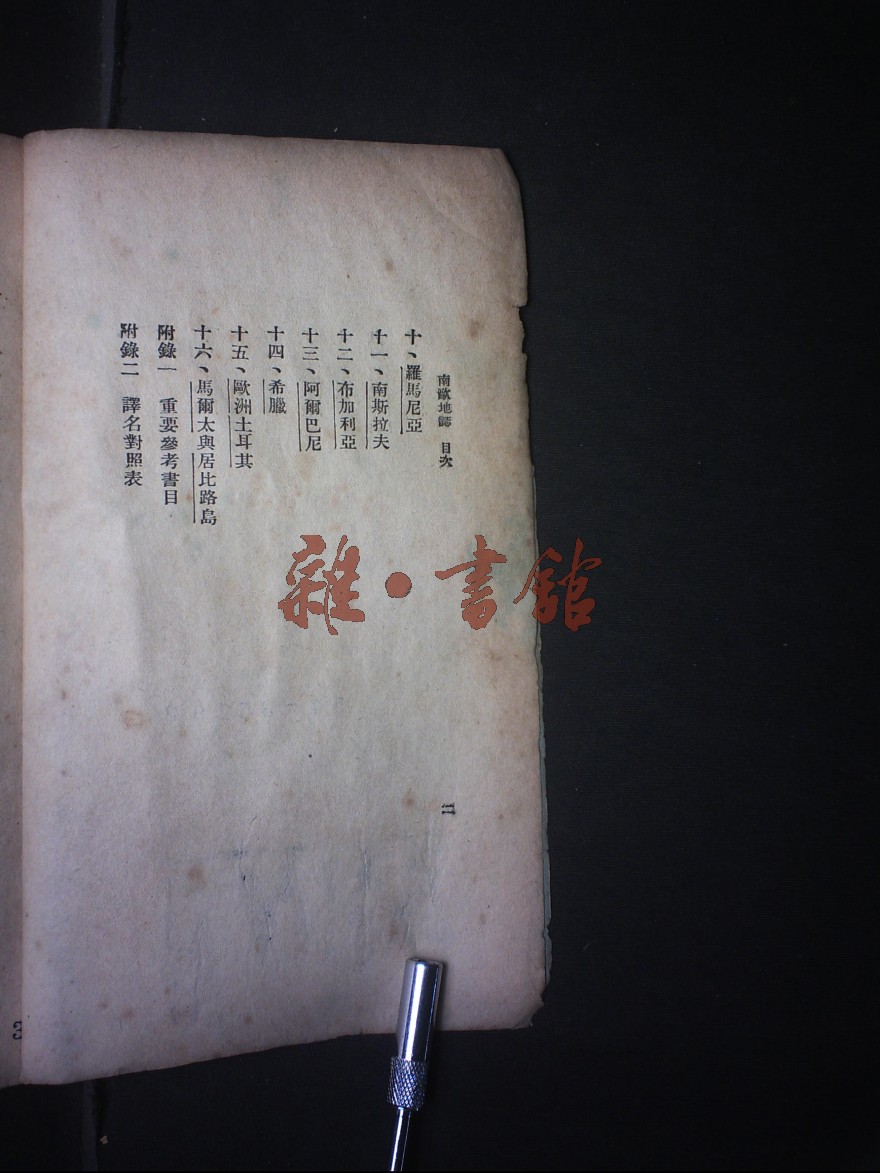 南歐地誌 目次
十、羅馬尼亞
十一、南斯拉夫
十二、布加利亞
十三、阿爾巴尼
十四、希臘
十五、歐洲土耳其
十六、馬爾太與居比路島
附錄一 重要參考書目
附錄二 譯名對照表
二
雜·書館